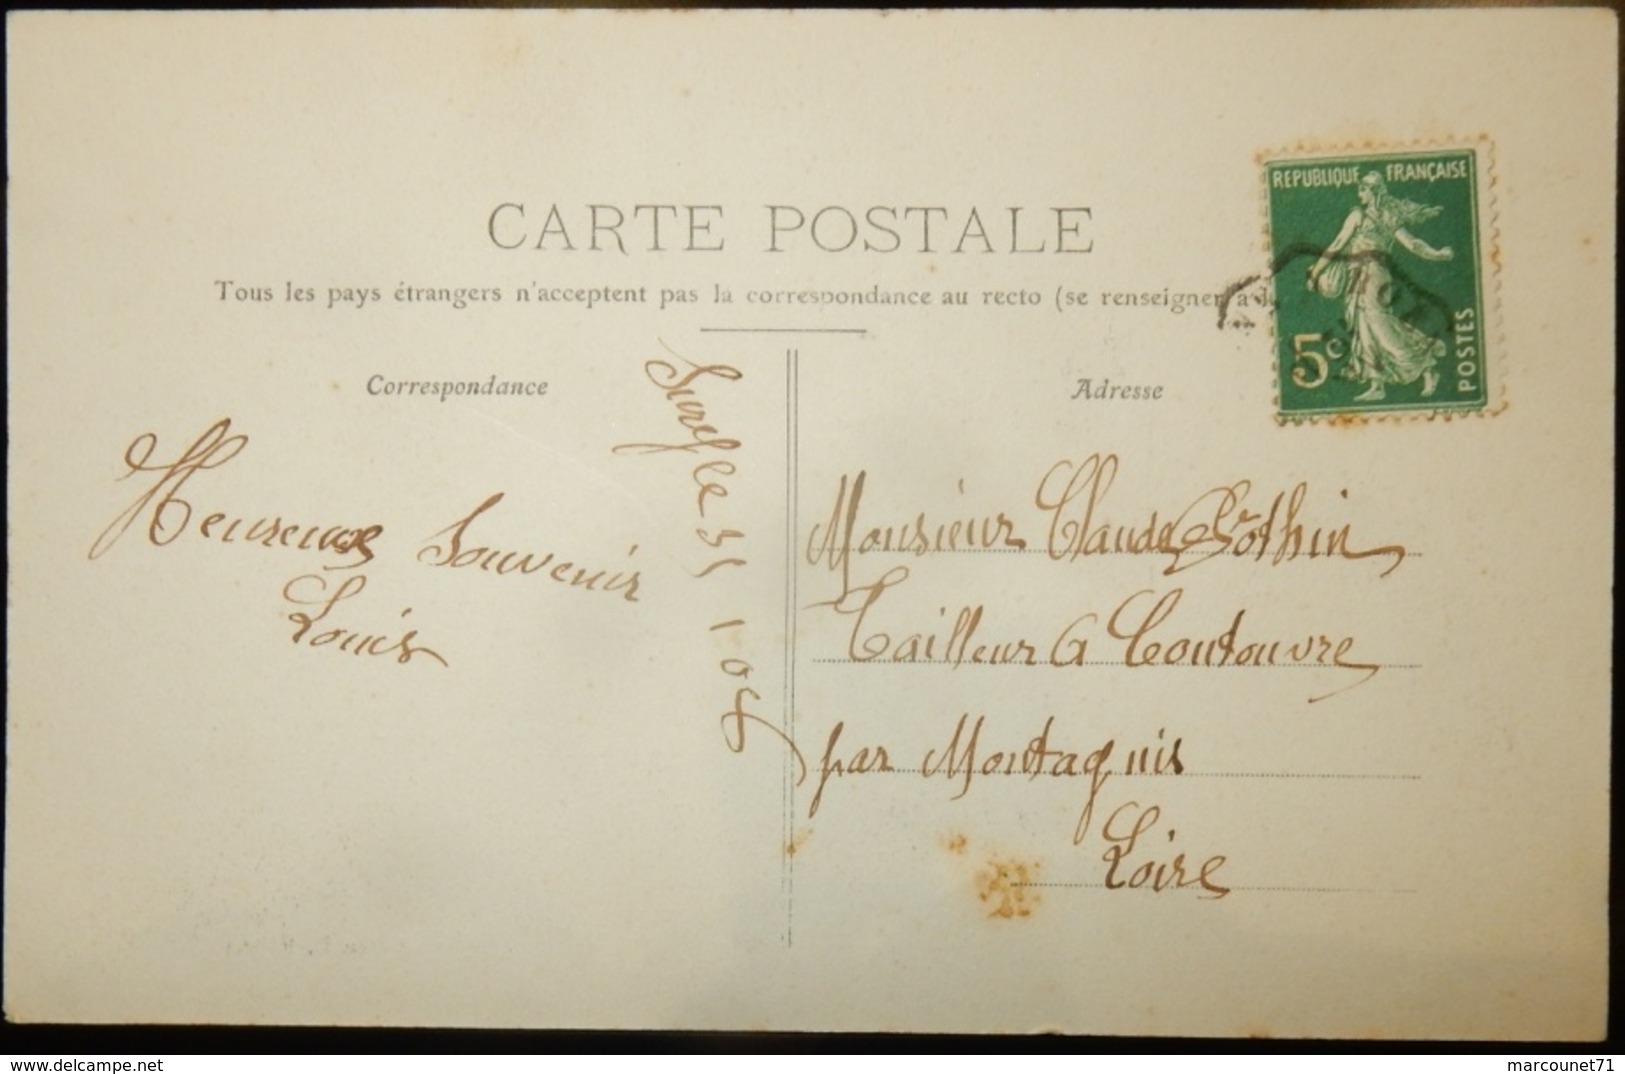 CARTE POSTALE
Tous les pays étrangers n'acceptent pas la correspondance au recto (se renseigner à l
Correspondance
Adresse
REPUBLIQUE FRANÇAISE
5c
POSTES
le 31 1 08
Heureuse Souvenir
Louis
Monsieur Claude Pothin
Tailleur a Coutouvre
par Montagnis
Loire
Posted for Delcampe.net
marcounet71